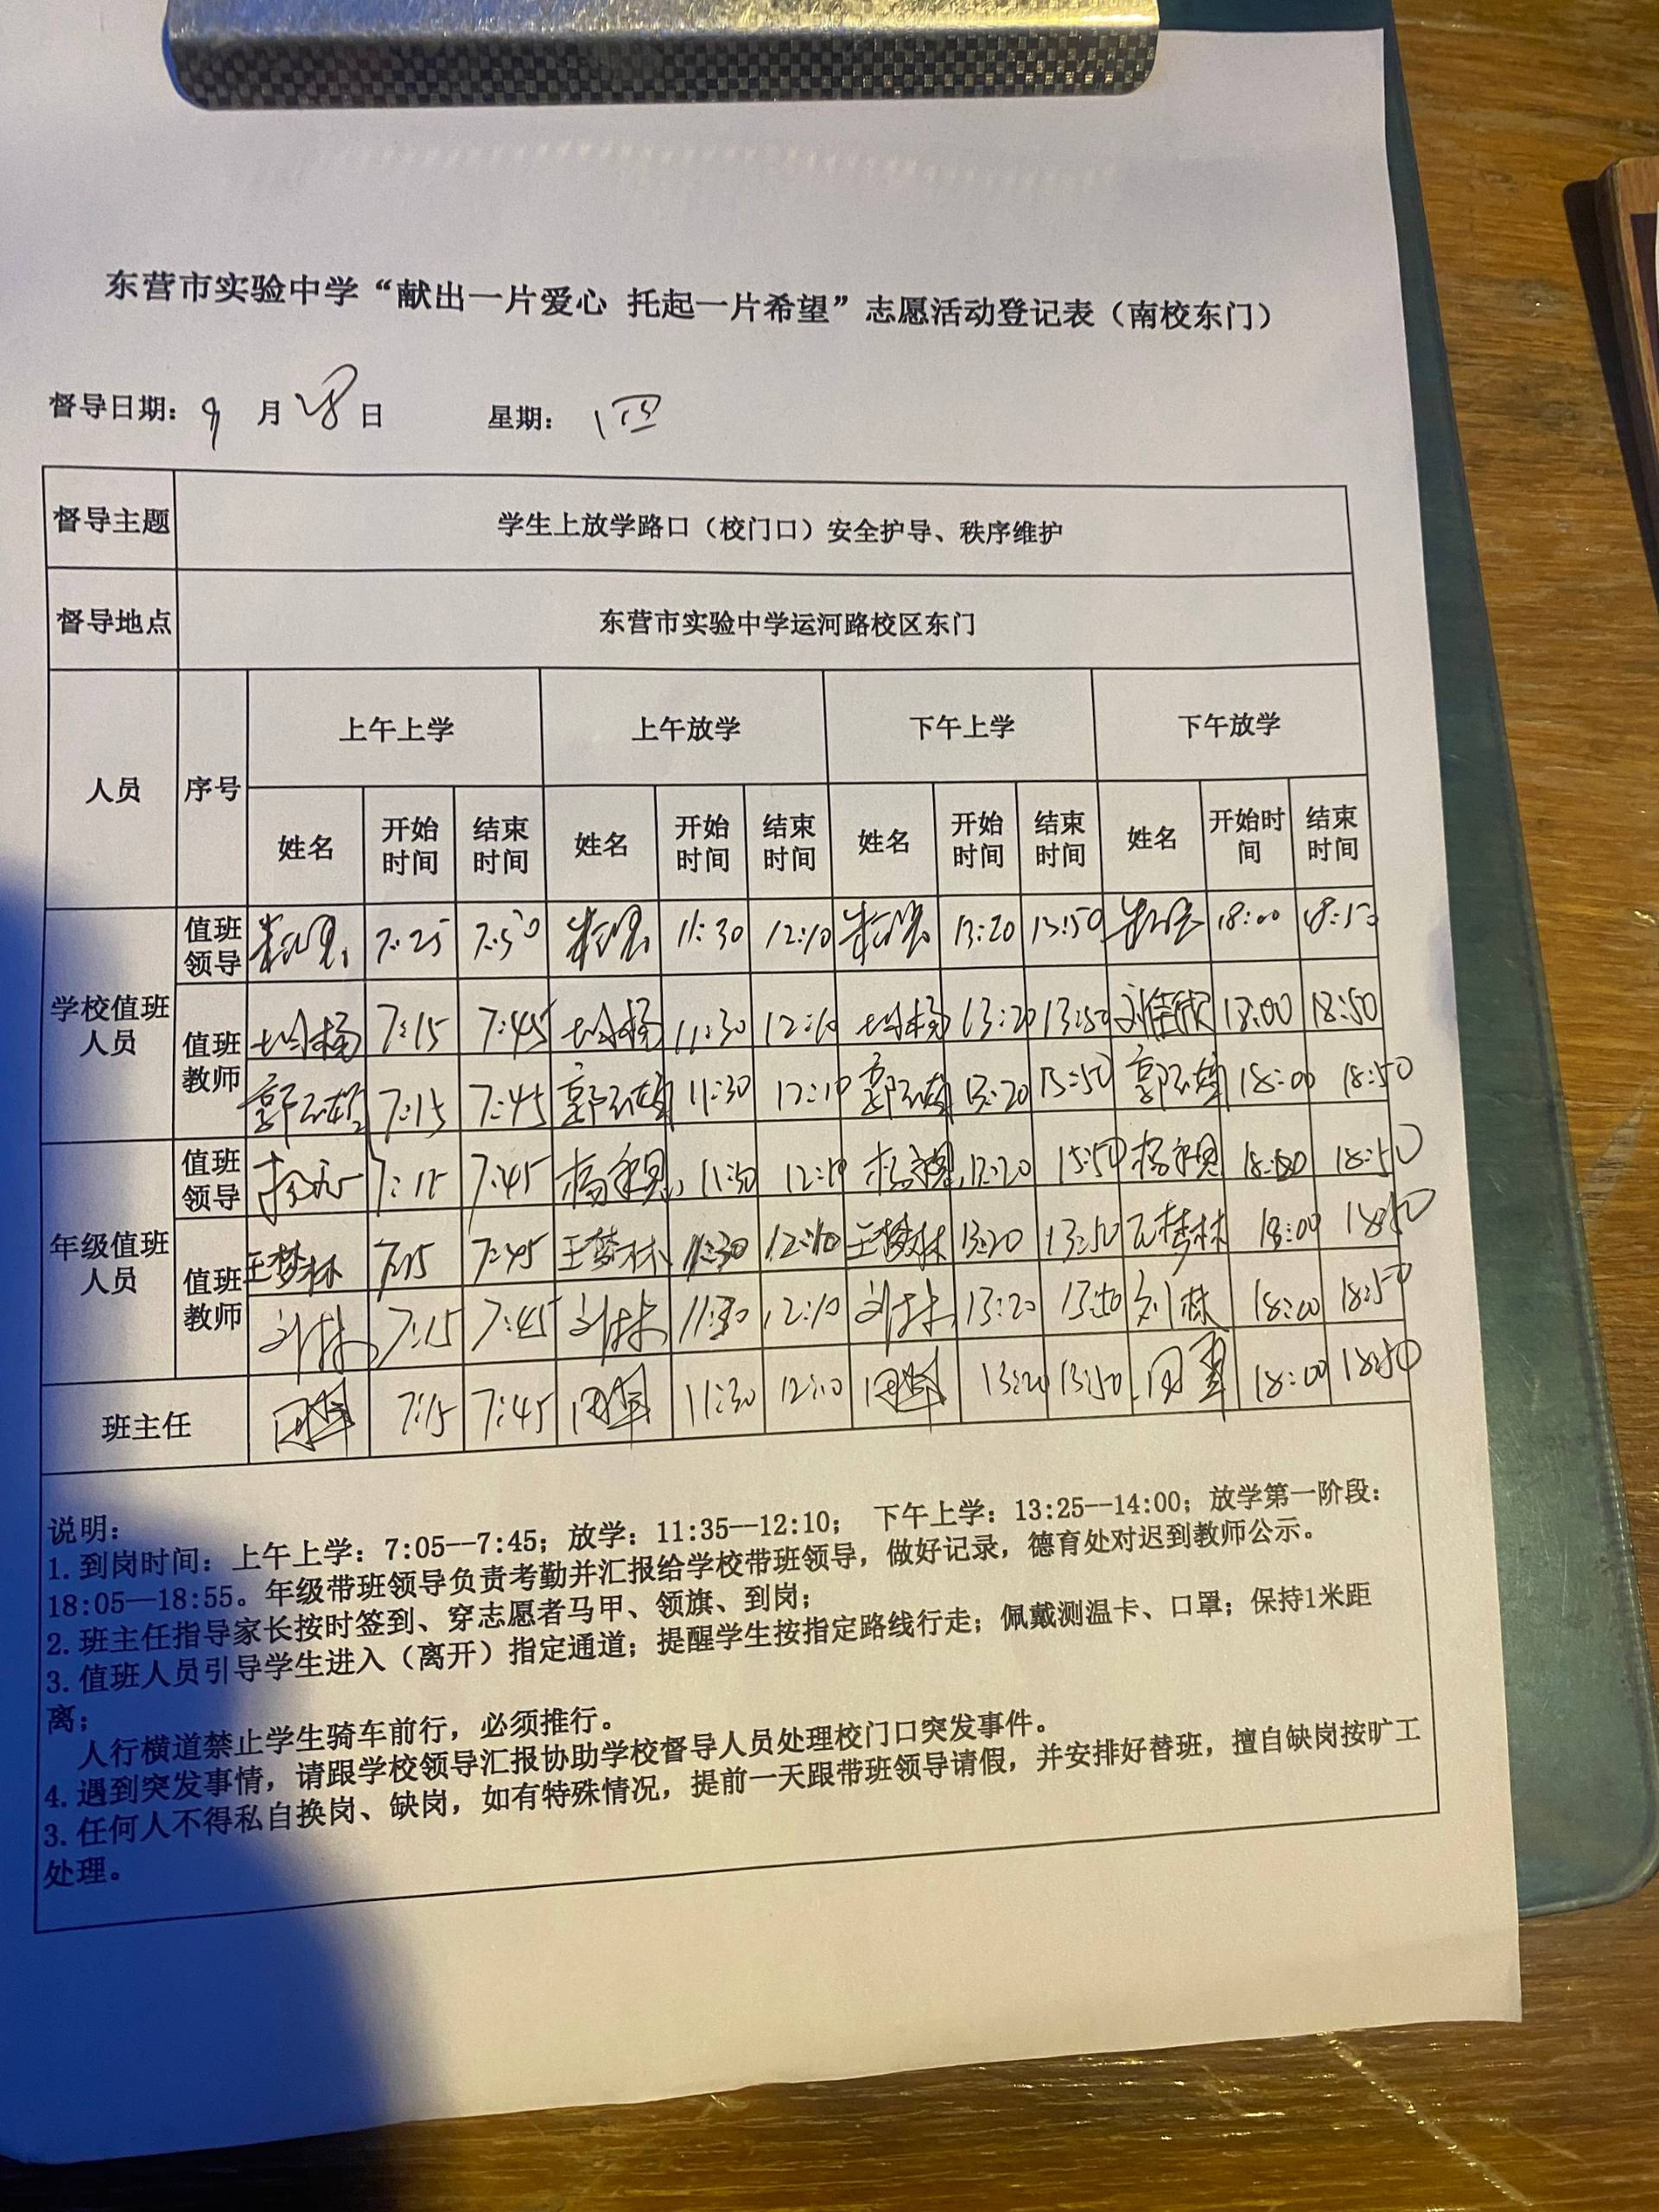 东营市实验中学“献出一片爱心 托起一片希望”志愿活动登记表（南校东门）
督导日期：9月28日 星期：四
督导主题 学生上放学路口（校门口）安全护导、秩序维护
督导地点 东营市实验中学运河路校区东门
人员 序号 上午上学 上午放学 下午上学 下午放学
姓名 开始时间 结束时间 姓名 开始时间 结束时间 姓名 开始时间 结束时间 姓名 开始时间 结束时间
学校值班人员
值班领导 7:25 7:50 11:30 12:10 13:20 13:50 18:00 18:50
值班教师 7:15 7:45 11:30 12:10 13:20 13:50 刘佳欣 18:00 18:50
郭 7:15 7:45 郭 11:30 12:10 郭 13:20 13:50 郭 18:00 18:50
年级值班人员
值班领导 杨 7:15 7:45 杨 11:30 12:10 杨 13:20 13:50 杨 18:00 18:50
值班教师 王梦林 7:15 7:45 王梦林 11:30 12:10 王梦林 13:20 13:50 王梦林 18:00 18:50
刘林 7:15 7:45 刘林 11:30 12:10 刘林 13:20 13:50 刘林 18:00 18:50
班主任 7:15 7:45 11:30 12:10 13:20 13:50 18:00 18:50
说明：
1.到岗时间：上午上学：7:05--7:45；放学：11:35--12:10； 下午上学：13:25--14:00；放学第一阶段：
18:05—18:55。年级带班领导负责考勤并汇报给学校带班领导，做好记录，德育处对迟到教师公示。
2.班主任指导家长按时签到、穿志愿者马甲、领旗、到岗；
3.值班人员引导学生进入（离开）指定通道；提醒学生按指定路线行走；佩戴测温卡、口罩；保持1米距
离；
人行横道禁止学生骑车前行，必须推行。
4.遇到突发事情，请跟学校领导汇报协助学校督导人员处理校门口突发事件。
3.任何人不得私自换岗、缺岗，如有特殊情况，提前一天跟带班领导请假，并安排好替班，擅自缺岗按旷工
处理。